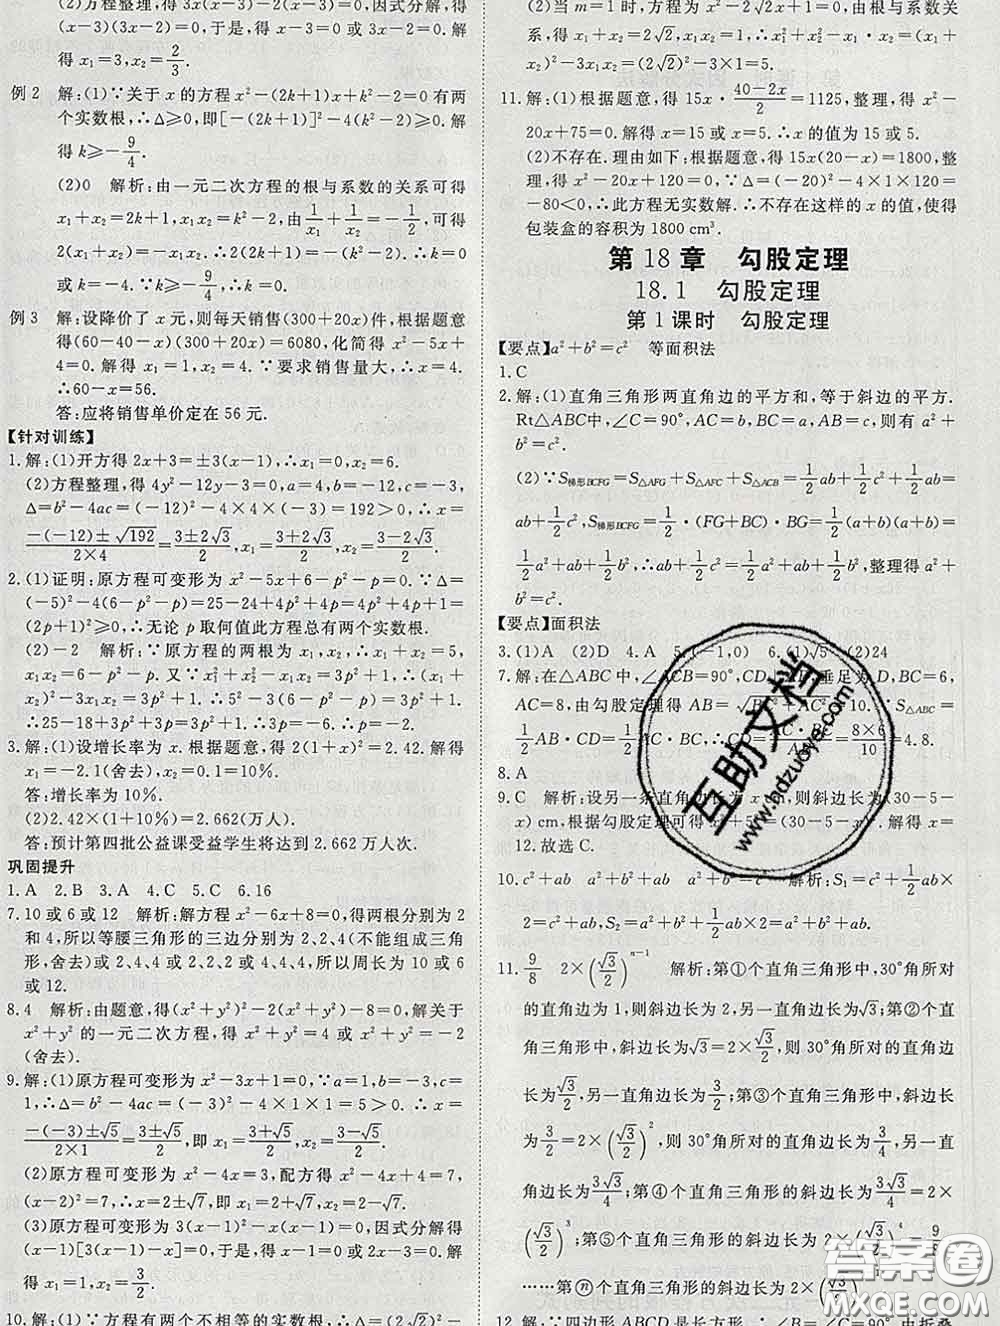 (2)方程整理,得 3x(x-3)-2(x-3)=0,因式分解,得
(x-3)(3x-2)=0,于是,得 x-3=0 或 3x-2=0. 解
得 x₁=3,x₂=2/3.
例 2 解:(1)∵关于 x 的方程 x²-(2k+1)x+k²-2=0 有两
个实数根,∴Δ≥0,即[-(2k+1)]²-4(k²-2)≥0. 解
得 k≥-9/4.
(2)0 解析:由一元二次方程的根与系数的关系可得
x₁+x₂=2k+1,x₁x₂=k²-2,由1/x₁+1/x₂=-1/2,可得
2(x₁+x₂)=-x₁x₂,∴2(2k+1)=-(k²-2),∴k=0
或 k=-4. ∵k≥-9/4,∴k=0.
例 3 解:设降价了 x 元,则每天销售(300+20x)件,根据题意
得(60-40-x)(300+20x)=6080,化简得 x²-5x+
4=0. 解得 x₁=1,x₂=4. ∵要求销售量大,∴x=4.
∴60-x=56.
答:应将销售单价定在 56 元.
【针对训练】
1.解:(1)开方得 2x+3=±3(x-1),∴x₁=0,x₂=6.
(2)方程整理,得 4y²-12y-3=0,a=4,b=-12,c=-3,
Δ=b²-4ac=(-12)²-4×4×(-3)=192>0,∴x=
(-(-12)±√192)/(2×4)=(3±2√3)/2,x₁=(3+2√3)/2,x₂=(3-2√3)/2.
2.(1)证明:原方程可变形为 x²-5x+6-p²-p=0. ∵Δ=
(-5)²-4(6-p²-p)=25-24+4p²+4p=4p²+4p+1=
(2p+1)²≥0,∴无论 p 取何值此方程总有两个实数根.
(2)-2 解析:∵原方程的两根为 x₁,x₂,∴x₁+x₂=5,
x₁x₂=6-p²-p. 又∵x₁²+x₂²-x₁x₂=3p²+1,
∴(x₁+x₂)²-3x₁x₂=3p²+1,∴5²-3(6-p²-p)=3p²+1,
∴25-18+3p²+3p=3p²+1,∴3p=-6,∴p=-2.
3.解:(1)设增长率为 x. 根据题意,得 2(1+x)²=2.42. 解得
x₁=-2.1(舍去),x₂=0.1=10%.
答:增长率为 10%.
(2)2.42×(1+10%)=2.662(万人).
答:预计第四批公益课受益学生将达到 2.662 万人次.
巩固提升
1.A 2.B 3.A 4.C 5.C 6.16
7.10 或 6 或 12 解析:解方程 x²-6x+8=0,得两根分别为 2
和 4,所以等腰三角形的三边分别为 2、2、4(不能组成三角
形,舍去)或 2、4、4 或 2、2、2 或 4、4、4. 所以周长为 10 或 6
或 12.
8.4 解析:由题意,得(x²+y²)²-2(x²+y²)-8=0,解关于
x²+y² 的一元二次方程,得 x²+y²=4 或 x²+y²=-2
(舍去).
9.解:(1)原方程可变形为 x²-3x+1=0,a=1,b=-3,c=
1,∴Δ=b²-4ac=(-3)²-4×1×1=5>0,∴x=
(-(-3)±√5)/(2×1)=(3±√5)/2,即 x₁=(3+√5)/2,x₂=(3-√5)/2.
(2)原方程可变形为 x²-4x=3,配方得 x²-4x+4=7,
(x-2)²=7,∴x=2±√7,即 x₁=2+√7,x₂=2-√7.
(3)原方程可变形为 3(x-1)-x(x-1)=0,因式分解得
(x-1)[3(x-1)-x]=0,于是,得 x-1=0 或 2x-3=0. 解
得 x₁=1,x₂=3/2.
10.解:(1)∵方程有两个不相等的实数根,
(2)当 m=1 时,方程为 x²-2√2x+1=0,由根与系数关
系,得 x₁+x₂=2√2,x₁x₂=1,∴x₁²+x₂²-x₁x₂=(x₁+
x₂)²-3x₁x₂=(2√2)²-3×1=5.
11.解:(1)根据题意,得 15x·(40-2x)/2=1125,整理,得 x²-
20x+75=0. 解得 x₁=15,x₂=5. ∴x 的值为 15 或 5.
(2)不存在.理由如下:根据题意,得 15x(20-x)=1800,整
理,得 x²-20x+120=0. ∵Δ=(-20)²-4×1×120=
-80<0,∴此方程无实数解. ∴不存在这样的 x 的值,使得
包装盒的容积为 1800 cm³.
第 18 章 勾股定理
18.1 勾股定理
第 1 课时 勾股定理
【要点】a²+b²=c² 等面积法
1.C
2.解:(1)直角三角形两直角边的平方和,等于斜边的平方.
Rt△ABC中,∠C=90°,AC=b,BC=a,AB=c,则有 a²+
b²=c².
(2)∵S梯形BCFG=S△AFG+S△AFC+S△ACB=1/2ab+1/2c²+1/2ab=
ab+1/2c²,S梯形BCFG=1/2·(FG+BC)·BG=1/2(a+b)(a+b)=
1/2a²+ab+1/2b². ∴ab+1/2c²=1/2a²+ab+1/2b²,整理得 a²+
b²=c².
【要点】面积法
3.(1)A (2)D 4.A 5.(-1,0) 6.(1)5 (2)24
7.解:在△ABC中,∠ACB=90°,CD⊥AB,垂足为D,BC=6,
AC=8,由勾股定理得 AB=√(BC²+AC²)=10. ∵S△ABC=
1/2AB·CD=1/2AC·BC,∴CD=AC·BC/AB=(8×6)/10=4.8.
8.A
9.C 解析:设另一条直角边长为 x cm,则斜边长为(30-5-
x) cm,根据勾股定理可得 x²+5²=(30-5-x)². 解得 x=
12.故选C.
10.c²+ab a²+b²+ab a²+b²=c² 解析:S₁=c²+1/2ab
×2=c²+ab,S₂=a²+b²+1/2ab×2=a²+b²+ab.
11.9/8 2×(√3/2)ⁿ⁻¹ 解析:第①个直角三角形中,30°角所对
的直角边长为 1,则斜边长为 2,另一条直角边长为√3;第②个直
角三角形中,斜边长为√3=2×√3/2,则30°角所对的直角边
长为√3/2,另一条直角边长为3/2;第③个直角三角形中,斜边长
为3/2=2×(√3/2)²,则30°角所对的直角边长为3/4,另一条直
角边长为3√3/4;第④个直角三角形的斜边长为3√3/4=2×
(√3/2)³;第⑤个直角三角形的斜边长为2×(√3/2)⁴=9/8;
……第ⓝ个直角三角形的斜边长为 2×(√3/2)ⁿ⁻¹
12.解:∵四边形 ABCD 是长方形,∴∠B=∠C=90°. 由折叠
互助文档
www.hdzuoye.com
答案圈
MXQE.COM